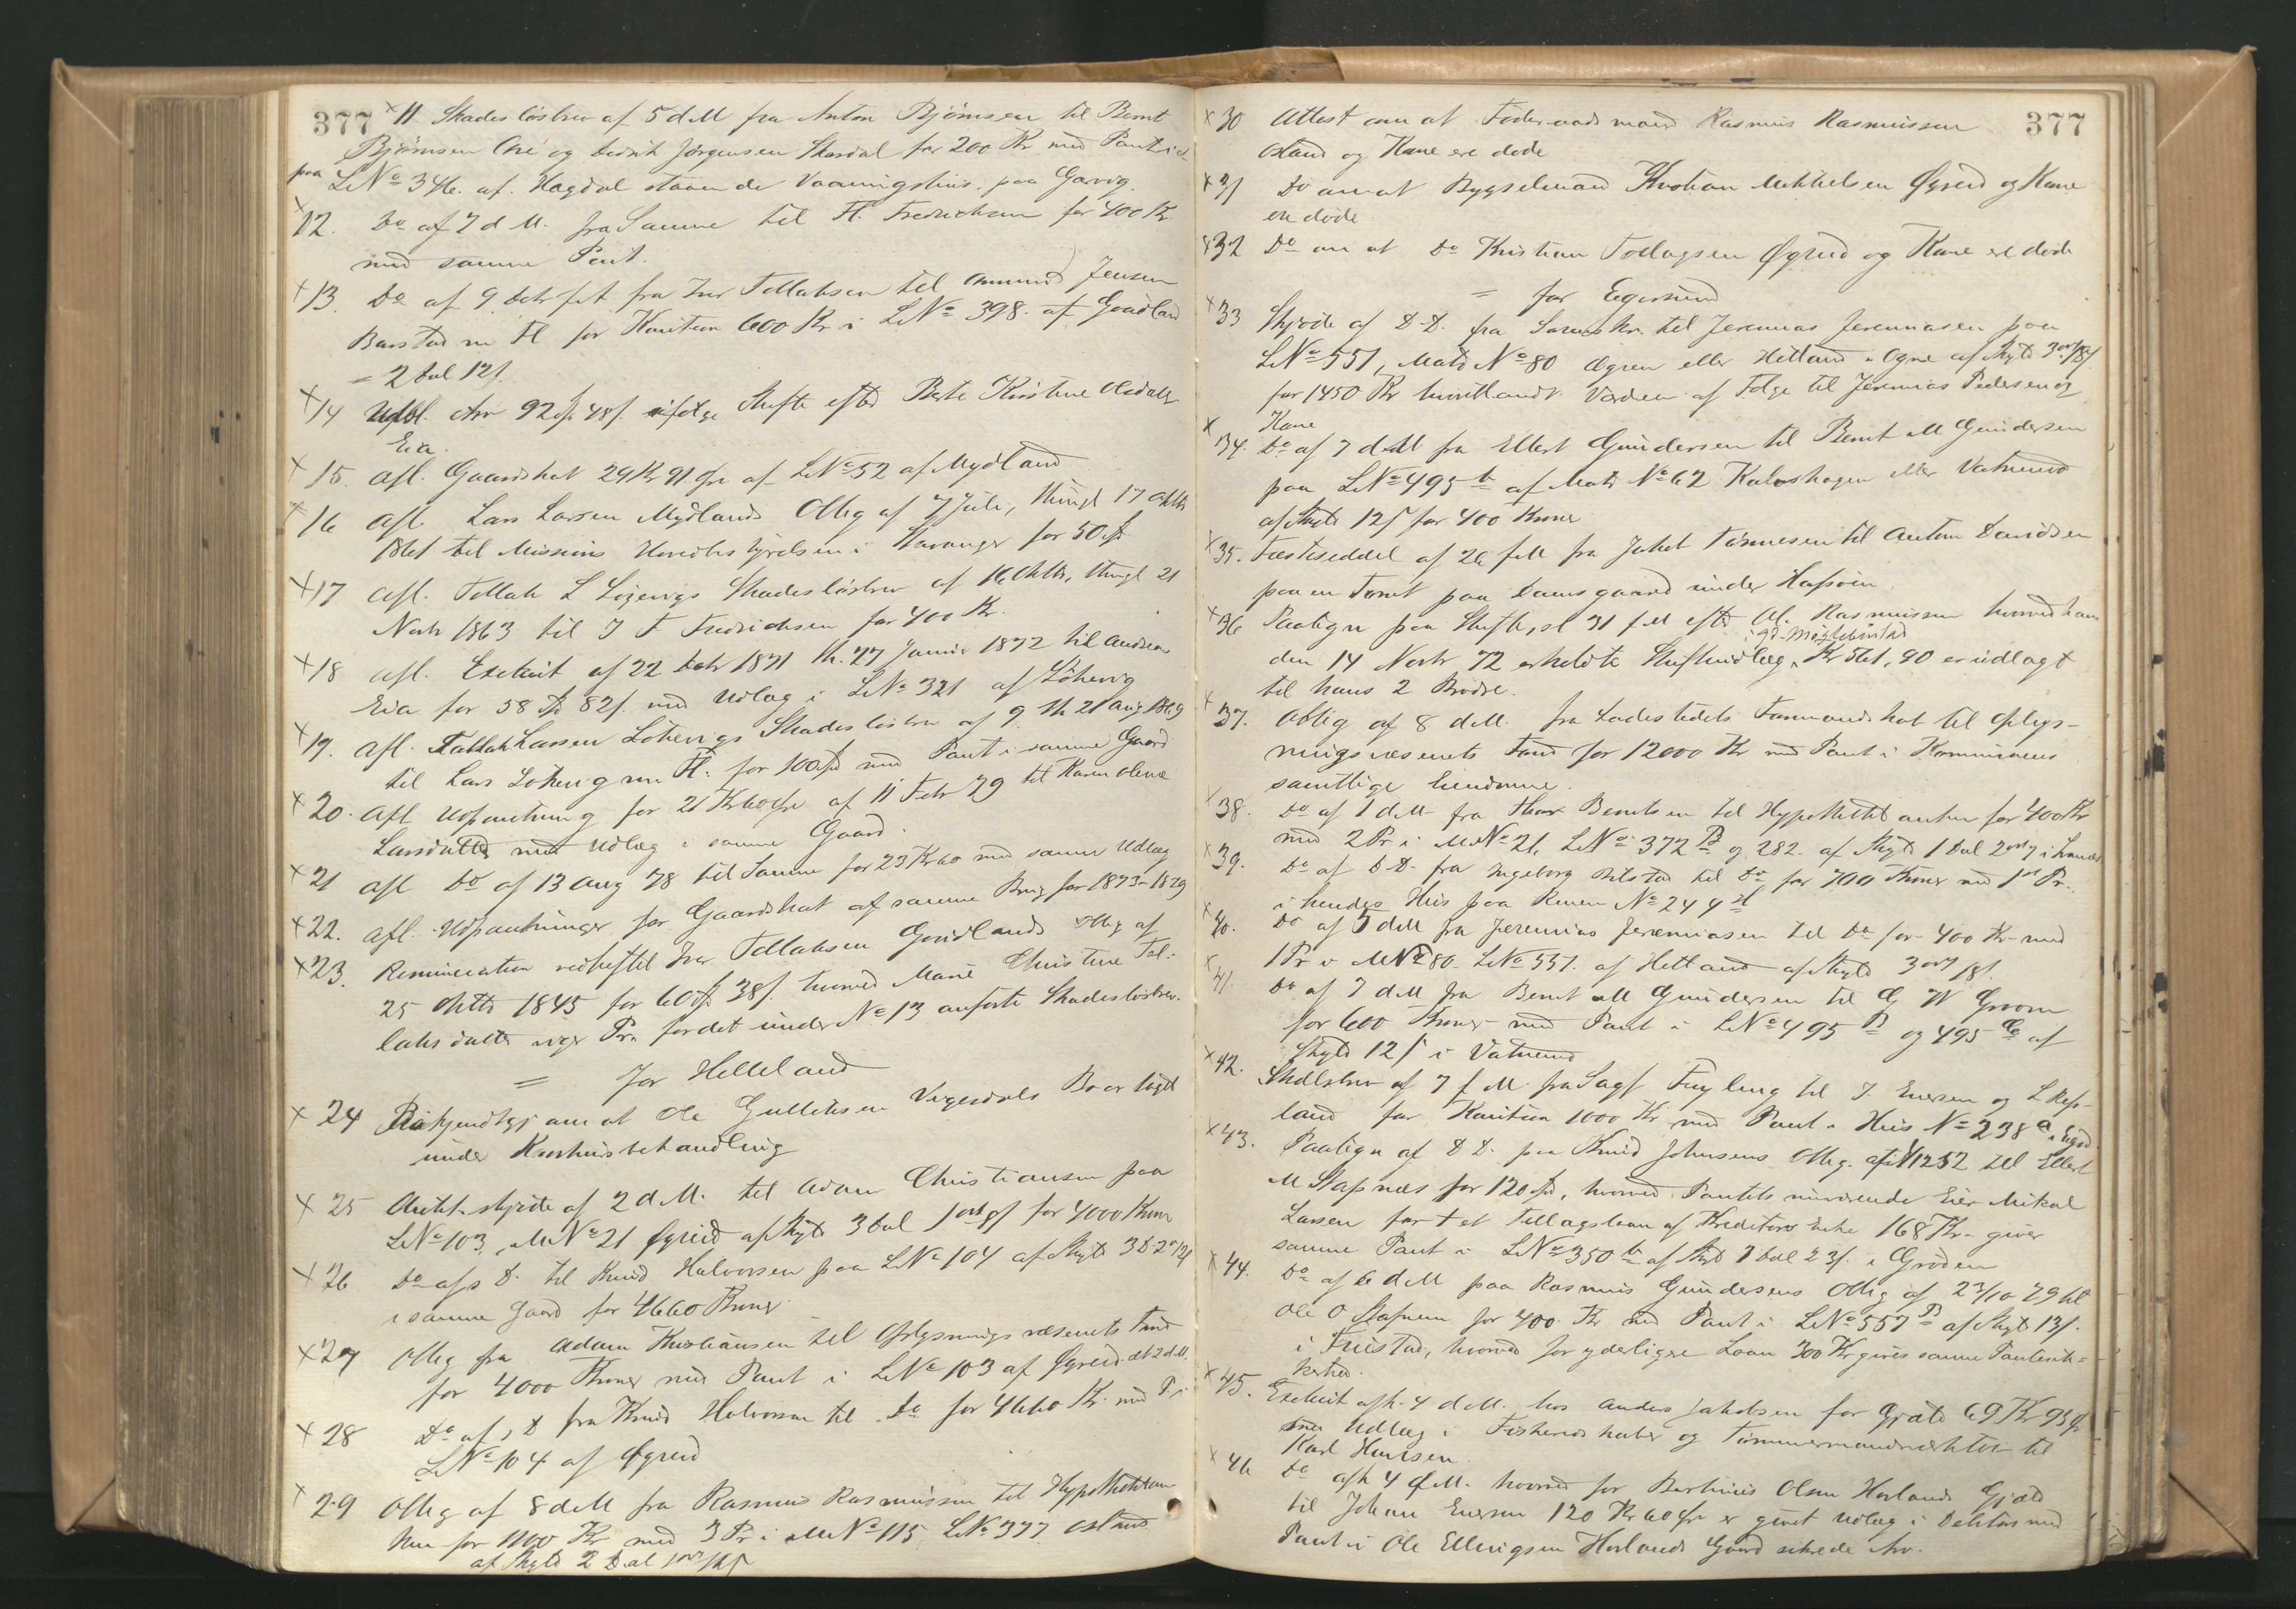 377 × 11. Skadesløsbrev af 5 d M fra Anton Bjørnsen til Bernt
Bjørnsen Ore og Jørgensen Skardal for 200 Kr. med Pant i et
paa L No 346. af Hagdal staaende Vaaningshus paa Garvig.
× 12. Do af 7 d M. fra Samme til Fl. Fredrichsen for 400 Kr.
med samme Pant.
× 13. Do af 9 Debr f A fra Iver Tollaksen til Ommund Jensen
Barstad m Fl for Kaution 600 Kr i LNo 398. af Goudland
= 2 Dal 12 s.
× 14 Udbl. Arv 92 spd 48 s. ifølge Skifte efter Berte Kristine Olsdatter
Eia.
× 15. Afl. Gaardskat 29 Kr 91 Øre af LNo 52 af Mydland
× 16 Afl. Lars Larsen Mydlands Oblig af 7 Juli, thingl 17 Oktbr
1861 til Missions Hovedbestyrelsen i Stavanger for 50 spd
× 17 Afl. Tollak L Løgevigs Skadesløsbrev af 16 Oktbr, thingl 21
Novbr 1863 til J F Fredrichsen for 400 Kr.
× 18 Afl. Exekut af 22 Debr 1871 th. 27 Januar 1872 til Andreas
Eia for 58 spd 82 s. med Udlæg i LNo 321 af Løkevig
× 19. Afl. Tallak Larsen Løkevigs Skadesløsbrev af 9. th 21 Aug 1869
til Lars Løkevig m Fl. for 100 spd med Pant i samme Gaard
× 20. Afl Udpantning for 21 Kr 60 Øre af 11 Febr 79 til Karen Olene
Larsdatter med Udlæg i samme Gaard.
× 21 Afl Do af 13 Aug 78 til Samme for 23 Kr 60 med samme Udlæg
× 22. Afl. Udpantninger for Gaardskat af samme Brug for 1873-1879
× 23. Renunciation vedheftet Iver Tollaksen Goudlands Oblig af
25 Oktbr 1845 for 60 spd 38 s. hvorved Marie Christine Tol-
laksdatter viger Pr. for det under No 13 anførte Skadesløsbrev.
= for Helleland
× 24 Bekjendtgj om at Ole Gulliksen Vigesdals Bo er taget
under Konkursbehandling
× 25 Auktskjøde af 2 d M. til Adam Christiansen paa
LNo 103, MNo 21 Øgreid af Skyld 3 Dal 1 ort 9 s for 4000 Kroner
× 26 Do af s D. til Knud Halvorsen paa LNo 104 af Skyld 3 D 2 o 12 s
i samme Gaard for 4660 Kroner
× 27 Oblig fra Adam Kristiansen til Oplysningsvæsenets Fond
for 4000 Kroner med Pant i LNo 103 af Øgreid dt 2 d M.
× 28 Do af s D fra Knud Halvorsen til Do for 4660 Kr. med P i
LNo 104 af Øgreid
× 29 Oblig af 8 d M fra Rasmus Rasmussen til Hypothekban
ken for 1100 Kr med 3 Pr i MNo 115, LNo 377 Osland
af Skyld 2 Dal 1 ort 12 s
× 30 Attest om at Føderaadsmand Rasmus Rasmussen 377
Osland og Kone ere døde
× 31 Do om at Bygselmand Kristian Mikkelsen Øgreid og Kone
ere døde
× 32 Do om at Do Kristian Tollagsen Øgreid og Kone ere døde
= for Egersund
× 33 Skjøde af D.D. fra til Jeremias Jeremiasen paa
LNo 551, Matr No 80 eller Hetland i Ogne af Skyld 3 ort 18 s
for 1450 Kr heriblandt Værdien af Følge til Jeremias Pedersen og
Kone
× 34. Do af 7 d M fra Ellert Gundersen til Bernt M Gundersen
paa LNo 495 b af Matr No 62 Kalvshagen eller Vatnemo
af Skyld 12 s for 400 Kroner
× 35. Fæsteseddel af 26 f M fra Jakob Tønnesen til Anton Davidsen
paa en Tomt paa Damsgaard under Hafsøen.
× 36 Paategn paa Skifte, sl 31 f M efter Ol. Rasmussen hvorved ham
i gd.
den 14 Novbr 72 erholdte Skifteudlæg, Kr 561, 90 er udlagt
til hans 2 Brødre.
× 37. Oblig af 8 d M. fra Ladestedets Formandskab til Oplys-
ningsvæsenets Fond for 12000 Kr med Pant i Kommunens
samtlige Eiendomme.
× 38. Do af 1 d M fra Thor Berntsen til Hypothekbanken for 400 Kr
med 2 Pr i MNo 21, LNo 372 B og 282 af Skyld 1 Dal 2 ort 7 i
× 39. Do af D.D. fra Ingeborg Bilstad til Do for 700 Kroner med 1st Pr.
i hendes Hus paa Renen No 244 d
× 40. Do af 5 d M fra Jeremias Jeremiasen til Do for 400 Kr med
1 Pr i MNo 80. LNo 551. af Hetland af Skyld 3 ort 18 s.
× 41. Do af 7 d M fra Bernt M Gundersen til G W Groom
for 600 Kroner med Pant i LNo 495 B og 495 C af
Skyld 12 s i Vatnemo
× 42. Skdlsbrev af 7 f M fra Sagf Fugling til J. Enersen og L
land for Kaution 1000 Kr med Pant i Hus No 238 a i Egsd
× 43. Paategn af D D. paa Knud Johnsens Oblig. af 11/12 52 til Ellert
M Stapnæs for 120 spd, hvorved Pantets nuværende Eier Mikal
Larsen for et Tillagslaan af Kreditors Enke 168 Kr. giver
samme Pant i LNo 350 b af Skyld 1 Dal 23 s. i Grøden
× 44. Do af 6 d M paa Rasmus Gundersens Oblig af 23/10 79 til
Ole O Stapnæs for 400 Kr med Pant i LNo 557 B af Skyld 13 s.
i Fuistad, hvorved for yderligere Laan 300 Kr gives samme Pantesik-
kerhed.
× 45. Exekut afh. 4 d M. hos Anders Jakobsen for Gjæld 69 Kr 93 Ø
med Udlæg i Fiskeredskaber og Tømmermandsverktøi til
Karl Hansen.
× 46 Do afh 4 d M. hvorved for Bertinius Olsen Havlands Gjæld
til Johan Enersen 120 Kr 60 Øre er gjort Udlæg i Debitors med
Pant i Ole Ellingsen Havlands Gaard sikrede Arv.